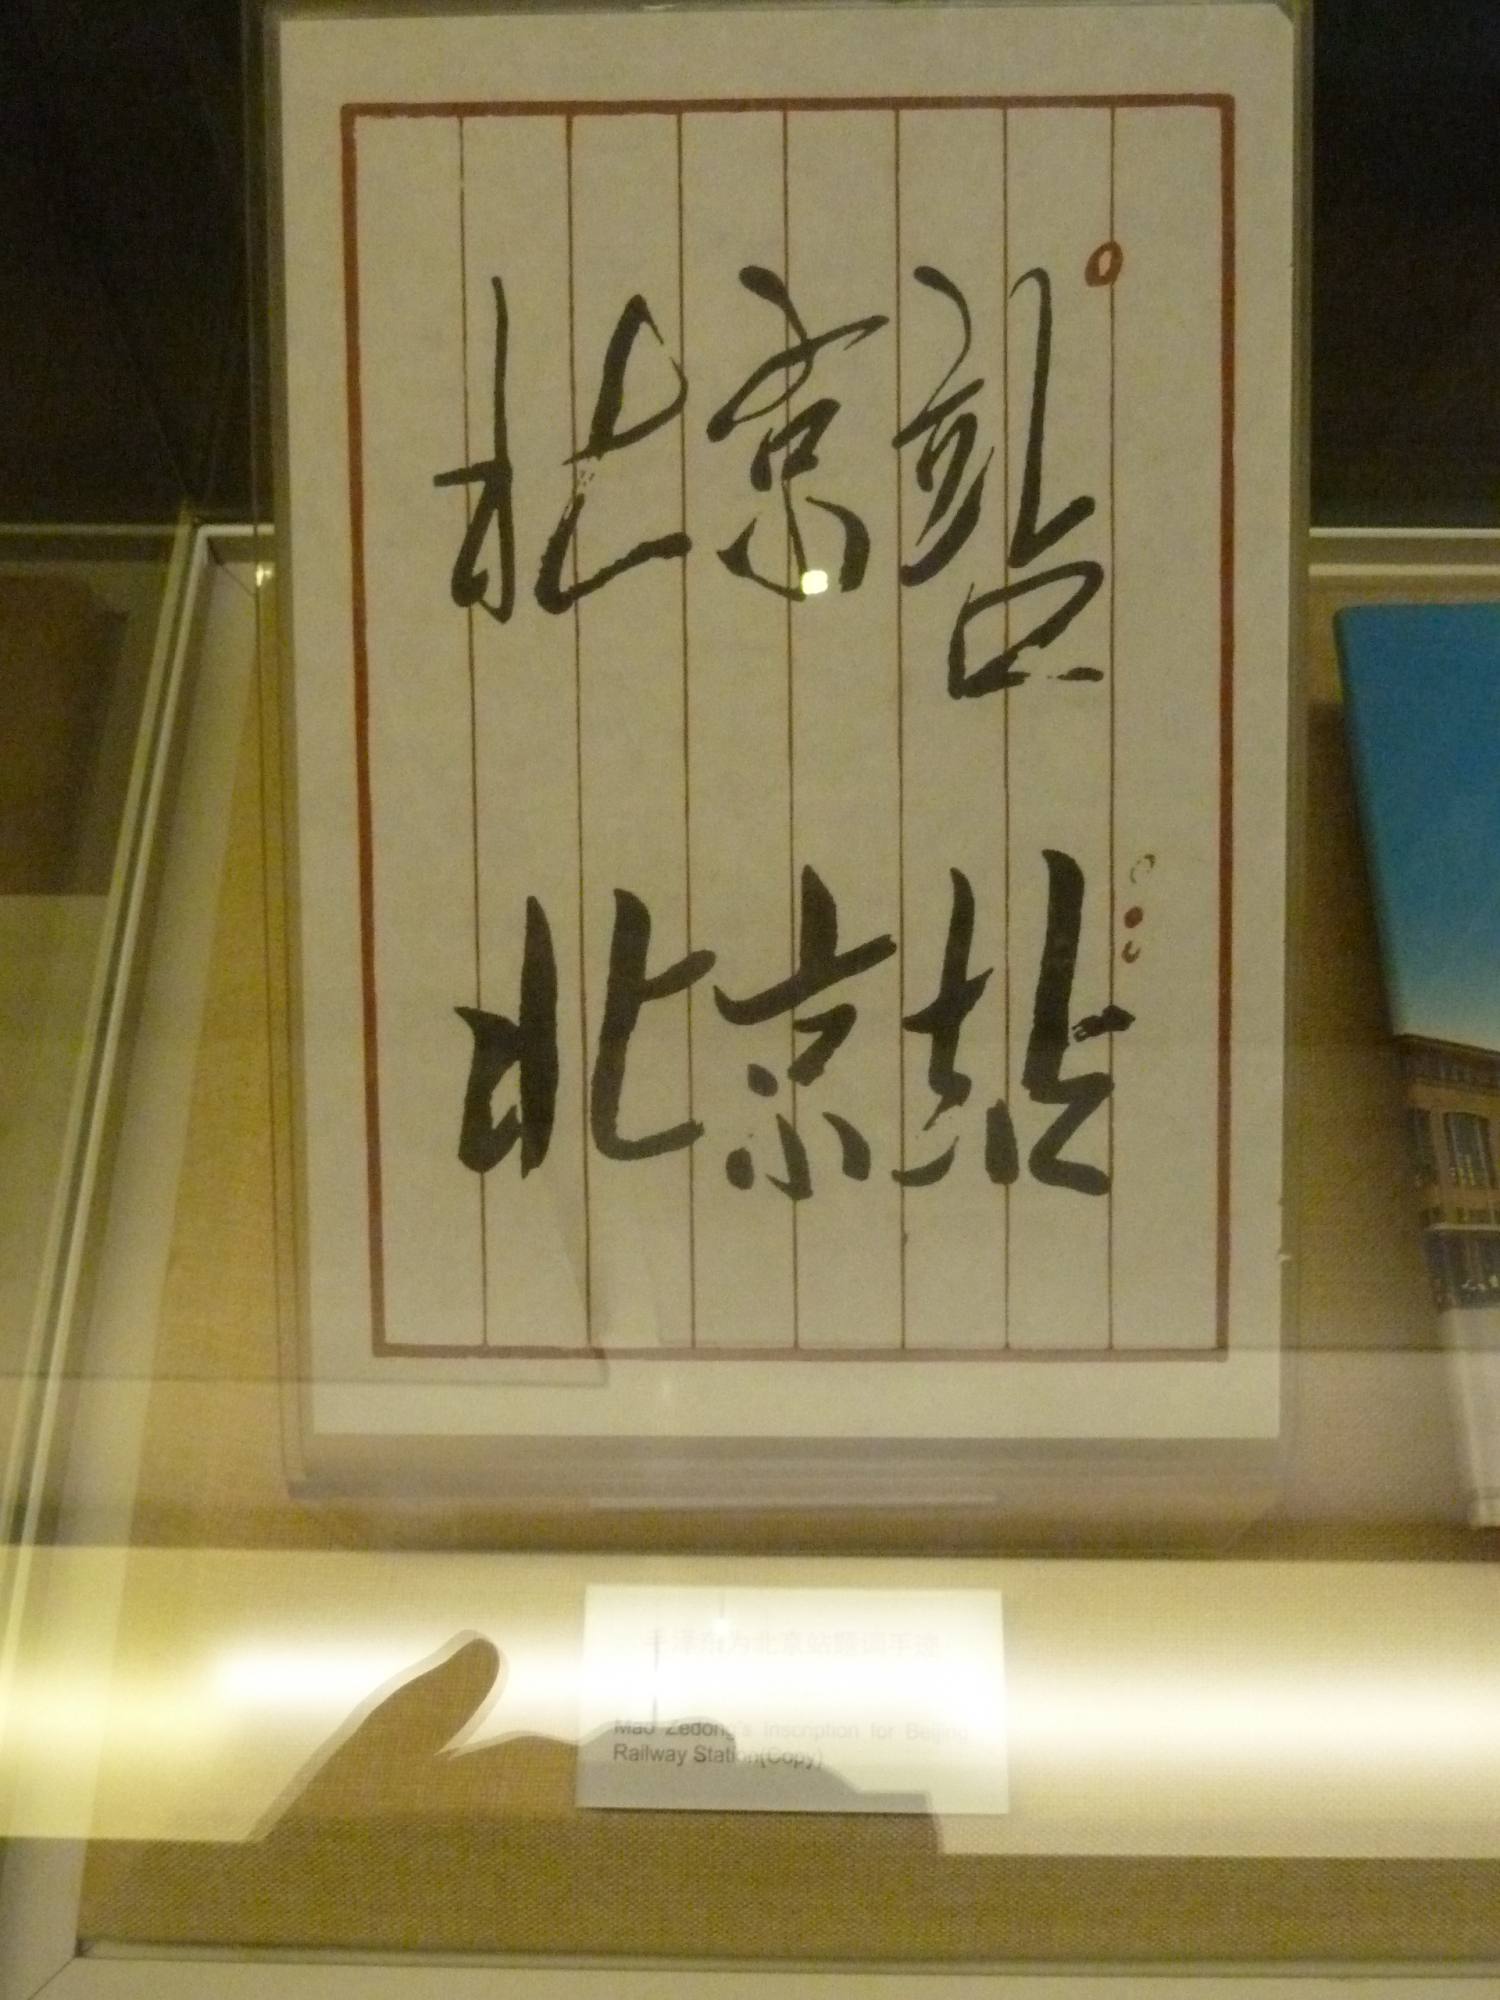 北京站
北京站
毛泽东为北京站题词手迹
Mao Zedong's Inscription for Beijing
Railway Station(Copy)